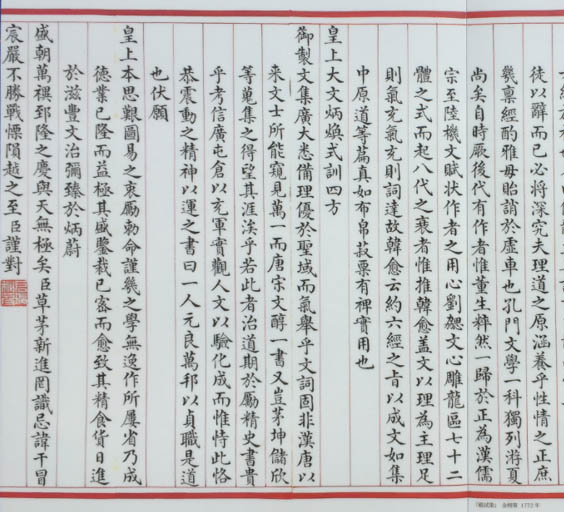 徒以辭而已必将深究夫理道之原涵養乎性情之正庶
幾稟經酌雅毋貽誚於虛車也孔門文學一科獨列游夏
尚矣自時厥後代有作者惟董生粹然一歸於正為漢儒
宗至陸機文賦状作者之用心劉勰文心雕龍區七十二
體之式而起八代之衰者惟推韓愈盖文以理為主理足
則氣充氣充則詞達故韓愈云約六經之旨以成文如集
中原道等萹真如布帛菽粟有裨實用也
皇上大文炳煥式訓四方
御製文集廣大悉備理優於聖域而氣舉乎文詞固非漢唐以
来文士所能窺見萬一而唐宋文醇一書又豈茅坤儲欣
等蒐集之得望其涯涘乎若此者治道期於勵精史書貴
乎考信廣屯倉以充軍實觀人文以驗化成而惟恃此恪
恭震動之精神以運之書曰一人元良萬邦以貞職是道
也伏願
皇上本思艱圖易之衷勵勅命謹幾之學無逸作所屢省乃成
德業已隆而益極其盛鑒裁已審而愈致其精食貨日進
於滋豐文治彌臻於炳蔚
盛朝萬禩郅隆之慶與天無極矣臣草茅新進罔識忌諱干冒
宸嚴不勝戰慄隕越之至臣謹對
「殿試策」 金榜筆 1772年